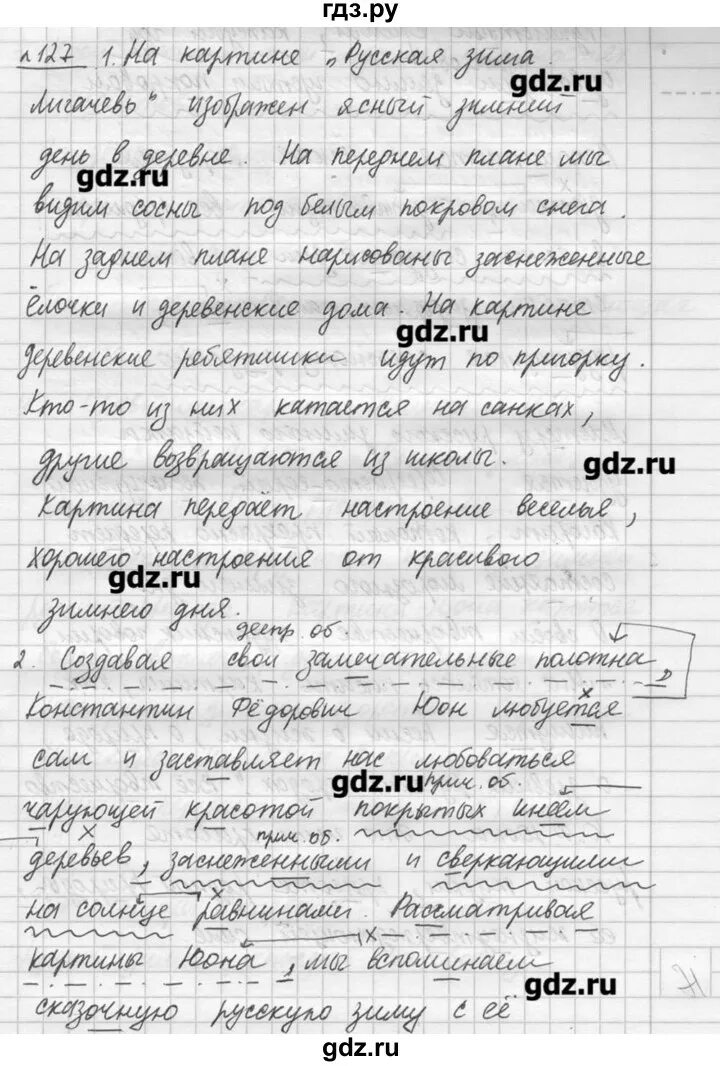 гдз.ру
n127 1. На картине „Русская зима.
gdz.ru
Лигачево" изображен ясный зимний
день в деревне. На переднем плане мы
gdz.ru
видим сосны под белым покровом снега.
На заднем плане нарисованы заснеженные
ёлочки и деревенские дома. На картине
gdz.ru
деревенские ребятишки идут по пригорку.
Кто-то из них катается на санках,
другие возвращаются из школы.
gdz.ru
Картина передаёт настроение веселья,
хорошего настроения от красивого
gdz.ru
зимнего дня.
деепр. об.
2. Создавая свои замечательные полотна,
Константин Фёдорович Юон любуется
сам и заставляет нас любоваться
gdz.ru
прич. об.
чарующей красотой покрытых инеем
прич. об.
деревьев, заснеженными и сверкающими
на солнце равнинами. Рассматривая
картины Юона, мы вспоминаем
gdz.ru
сказочную русскую зиму с её
gdz.ru